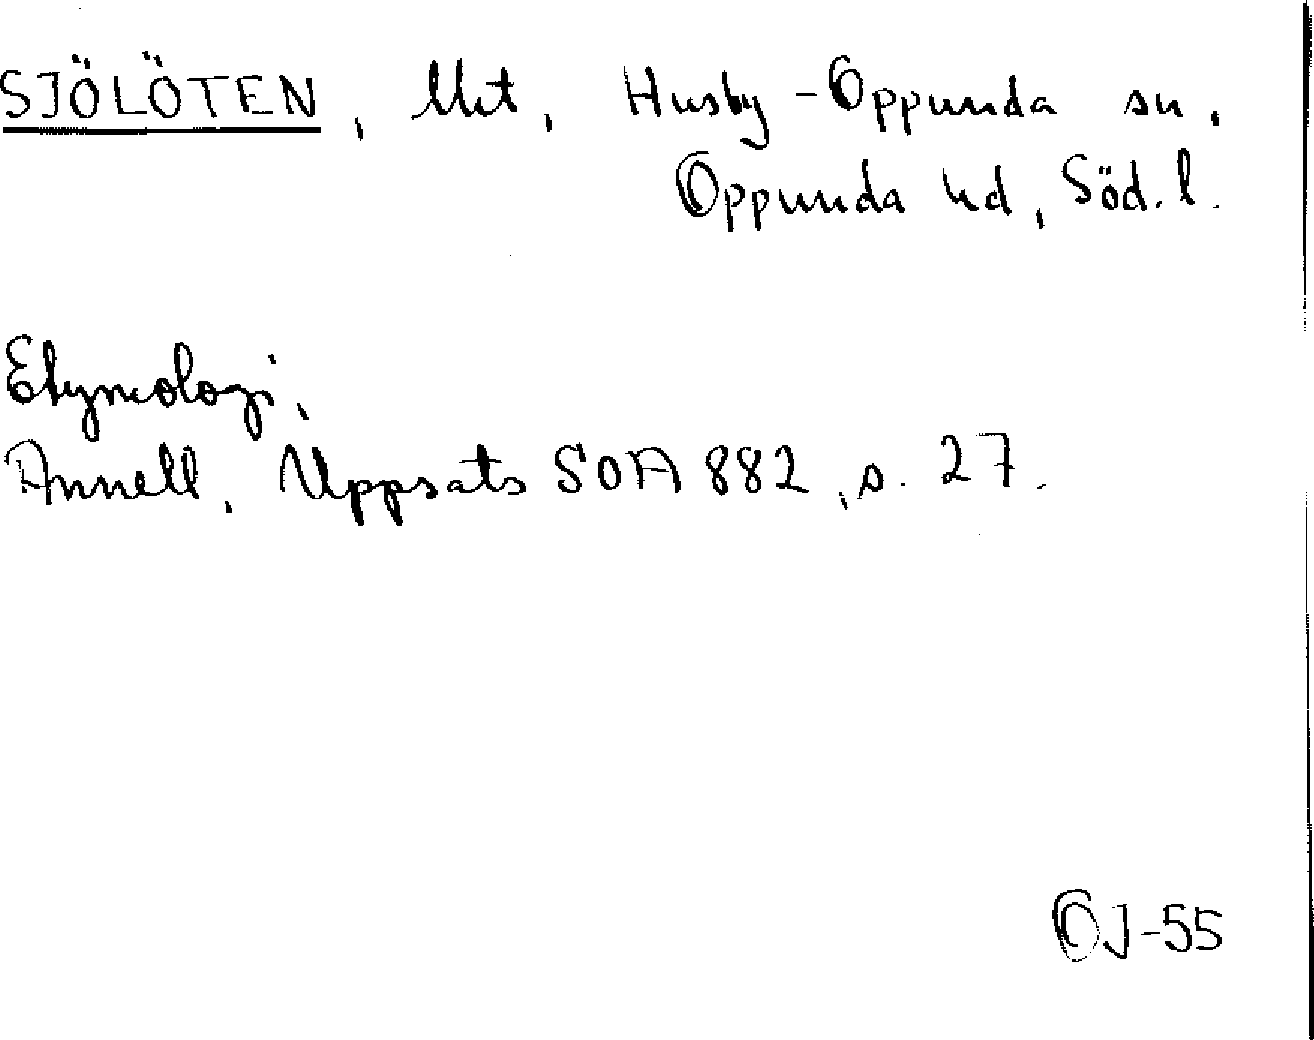 SJÖLÖTEN, Uut, Husby-Oppunda sn.
Oppunda hd, Söd. l.
Etymologi,
Annell, Uppsats SOA 882, s. 27.
OJ-55